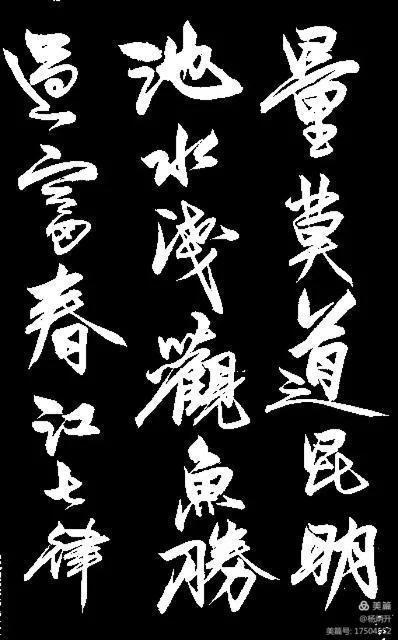 量莫道昆明
池水淺觀魚勝
過富春江七律
美篇
@杨炳升
美篇号: 17504552